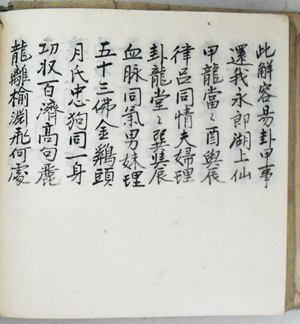 此解容易卦甲事
還我永郎湖上仙
甲龍當〻酉與辰
律呂同情夫婦理
卦龍堂〻巽巽辰
血脉同氣男妹理
五十三佛金鷄頭
月氏忠狗同一身
功収百濟高句麗
龍離榆淵飛何處